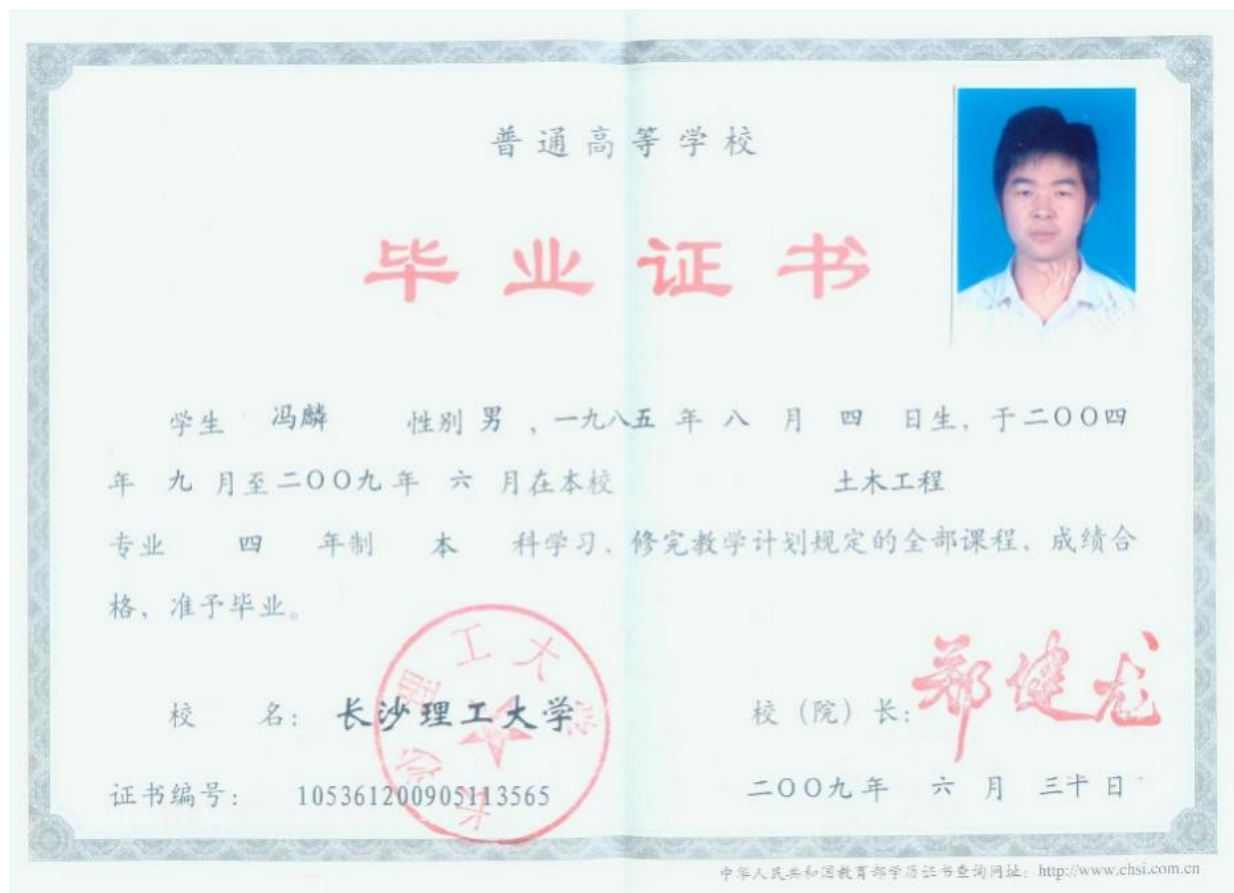 普通高等学校
毕业证书
学生 冯麟 性别 男 、一九八五 年 八 月 四 日生, 于二OO四
年 九 月至二OO九年 六 月在本校 土木工程
专业 四 年制 本 科学习, 修完教学计划规定的全部课程, 成绩合
格, 准予毕业。
校 名: 长沙理工大学 校(院)长: 郑健龙
长沙理工大学
证书编号: 105361200905113565 二OO九年 六 月 三十 日
中华人民共和国教育部学历证书查询网址: http://www.chsi.com.cn